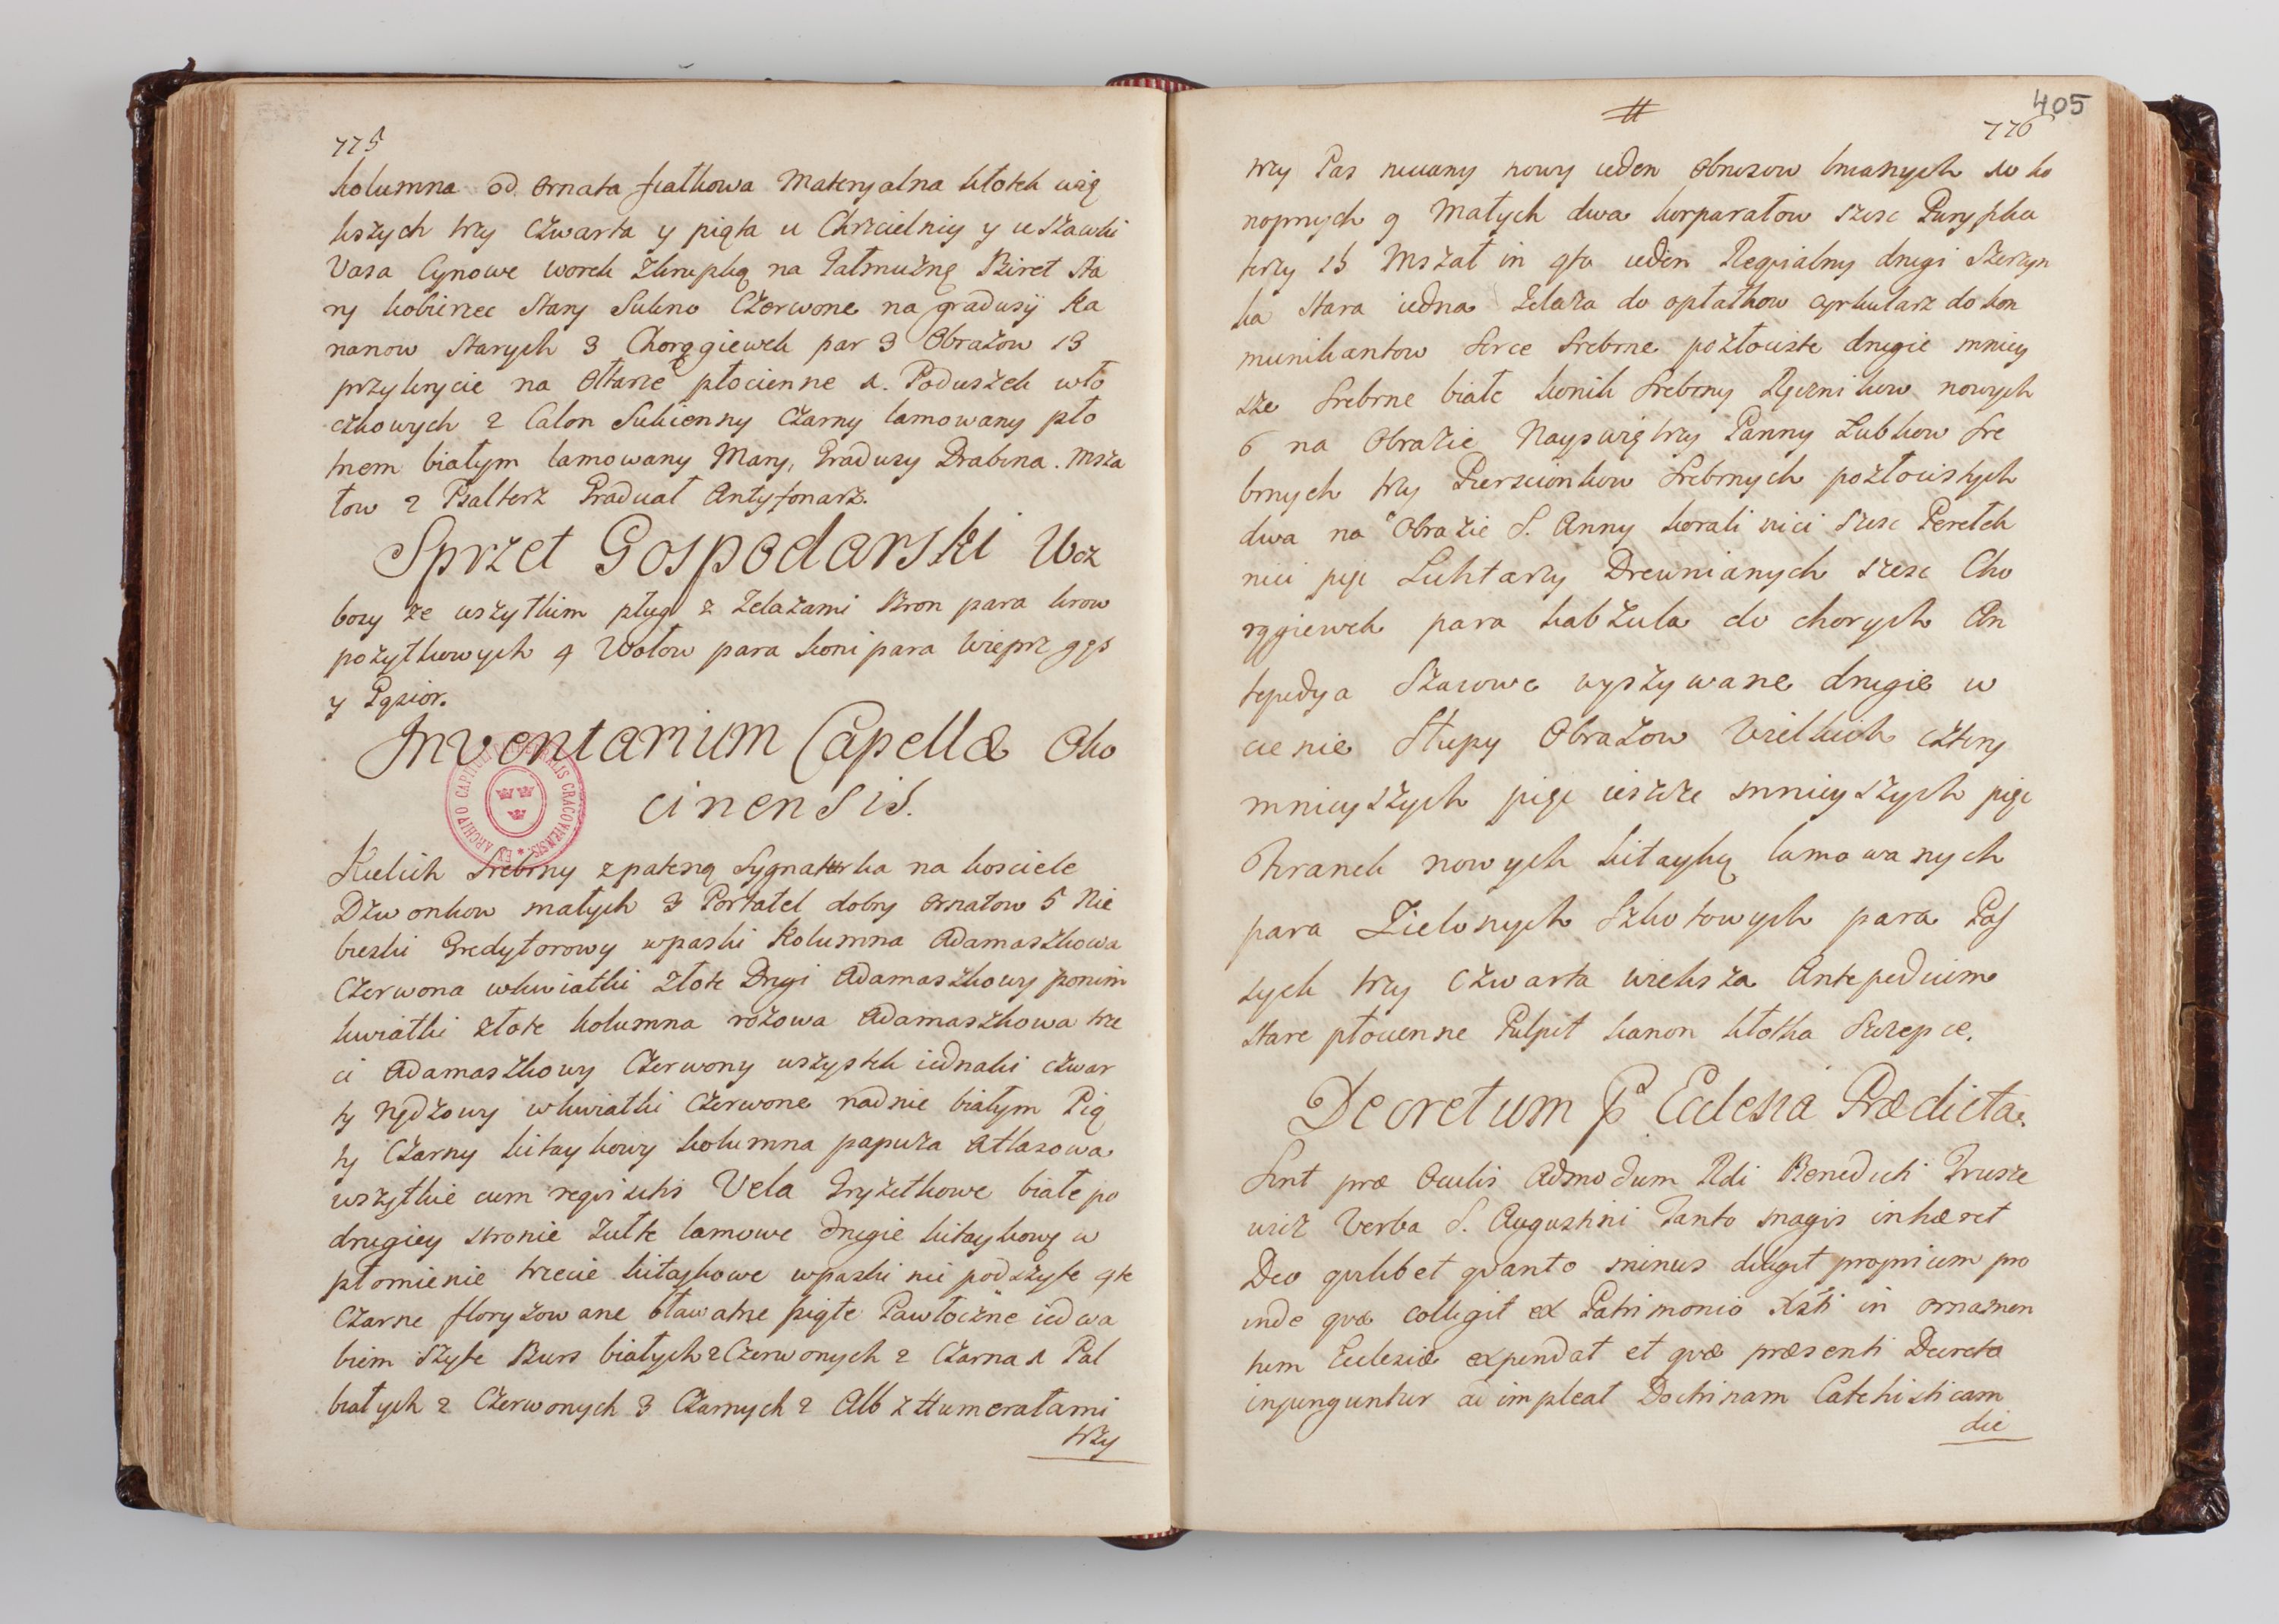 775
kolumna od ornata fiałkowa Materyalna kłotek wię
kszych trzy Czwarta y piąta u Chrzcielnicy y u szawki
Vasa Cynowe worek Zkrupką na Jałmużnę Biret sta
ry kobierzec stary Sukno Czerwone na gradusy Ka
nanow starych 3 Chorągiewek par 3 Obrazow 13
przykrycie na Ołtarze płocienne 1. Poduszek wło
czkowych 2 Calon Sukienny Czarny lamowany pło
tnem białym lamowany Mary, Gradusy Drabina. Msza
łow 2 Psałterz Graduał Antyfonarz.
Sprzet Gospodarski Woz
bosy ze wszytkim pług z Zelazami Bron para krow
pozytkowych 4 Wołow para koni para Wieprz gęś
y Gąsior.
Inventarium Capellæ Oko
cinensis.
EX ARCHIVO CAPITULI CATHEDRALIS CRACOVIENSIS
Kielich srebrny z pateną Sygnaturka na kosciele
Dzwonkow małych 3 Portatel dobry Ornatow 5 Nie
bieski Gredytorowy w paski Kolumna Adamaszkowa
Czerwona w kwiatki złote Drugi Adamaszkowy ponim
kwiatki złote kolumna rożowa Adamaszkowa trze
ci Adamaszkowy Czerwony wszystek iednaki czwar
ty Nędzowy w kwiatki Czerwone na dnie białym Pią
ty Czarny kitaykowy kolumna papuza Atlasowa
wszytkie cum requisitis Vela Gryzetkowe białe po
drugiey stronie żułte lamowe drugie kitaykowe w
płomienie trzecie kitaykowe w paski nie podszyte 4te
Czarne floryzowane bławatne piąte Pawłoczne iedwa
biem szyte Burs białych 2 Czerwonych 2 Czarna 1 Pal
białych 2 Czerwonych 3 Czarnych 2 Alb z Humerałami
trzy
405
776
trzy Pas niciany nowy ieden Obrusow lnianych 10 ko
nopnych 9 Małych dwa korporałow szesc Puryfika
terzy 15 Mszał in 4to ieden Requialny drugi Skrzyn
ka stara iedna Zelaza do opłatkow cyrkularz do kom
munikantow Serce srebrne pozłociste drugie mniey
sze srebrne białe konik srebrny Ręcznikow nowych
6 na Obrazie Nayswiętrzy Panny Zubkow sre
brnych trzy Pierscionkow srebrnych pozłocistych
dwa na Obrazie S. Anny korali nici szesc Perełek
nici pięc Lichtarzy Drewnianych szesc Cho
rągiewek para kabzula do chorych An
tepedya Szarowe wyszywane drugie w
cienie Słupy Obrazow Wielkich cztery
mnieyszych pięc ieszcze mnieyszych pięc
Firanek nowych kitayką lamowanych
para Zielonych Szkotowych para Pas
sych trzy czwarta wieksza Antepedium
stare płocienne Pulpit kanon kłotka Szczepce.
Decretum P Ecclesia Prædicta.
Sint præ Oculis Admodum Rdi Benedicti Grusze
wicz Verba S. Augustini Tanto magis inhæret
Deo quilibet quanto minus diligit proprium pro
inde quæ colligit ex Patrimonio Xsti in ornamen
tum Ecclesiæ expendat et quæ præsenti Decreto
injunguntur adimpleat Doctrinam Catehisticam
die